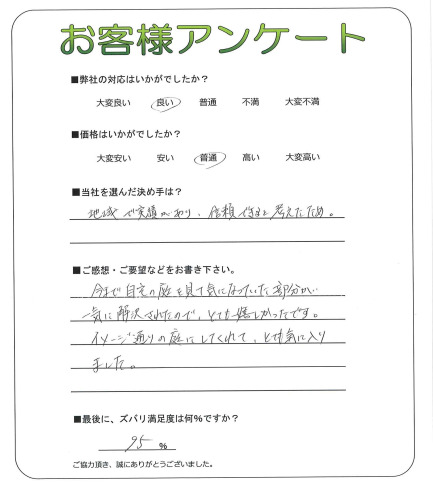 お客様アンケート
■弊社の対応はいかがでしたか?
大変良い 良い 普通 不満 大変不満
■価格はいかがでしたか?
大変安い 安い 普通 高い 大変高い
■当社を選んだ決め手は?
地域で実績があり、信頼できると考えたため。
■ご感想・ご要望などをお書き下さい。
今まで自宅の庭を見て気になっていた部分が、
一気に解決されたので、とても嬉しかったです。
イメージ通りの庭にしてくれて、とても気に入り
ました。
■最後に、ズバリ満足度は何%ですか?
95 %
ご協力頂き、誠にありがとうございました。